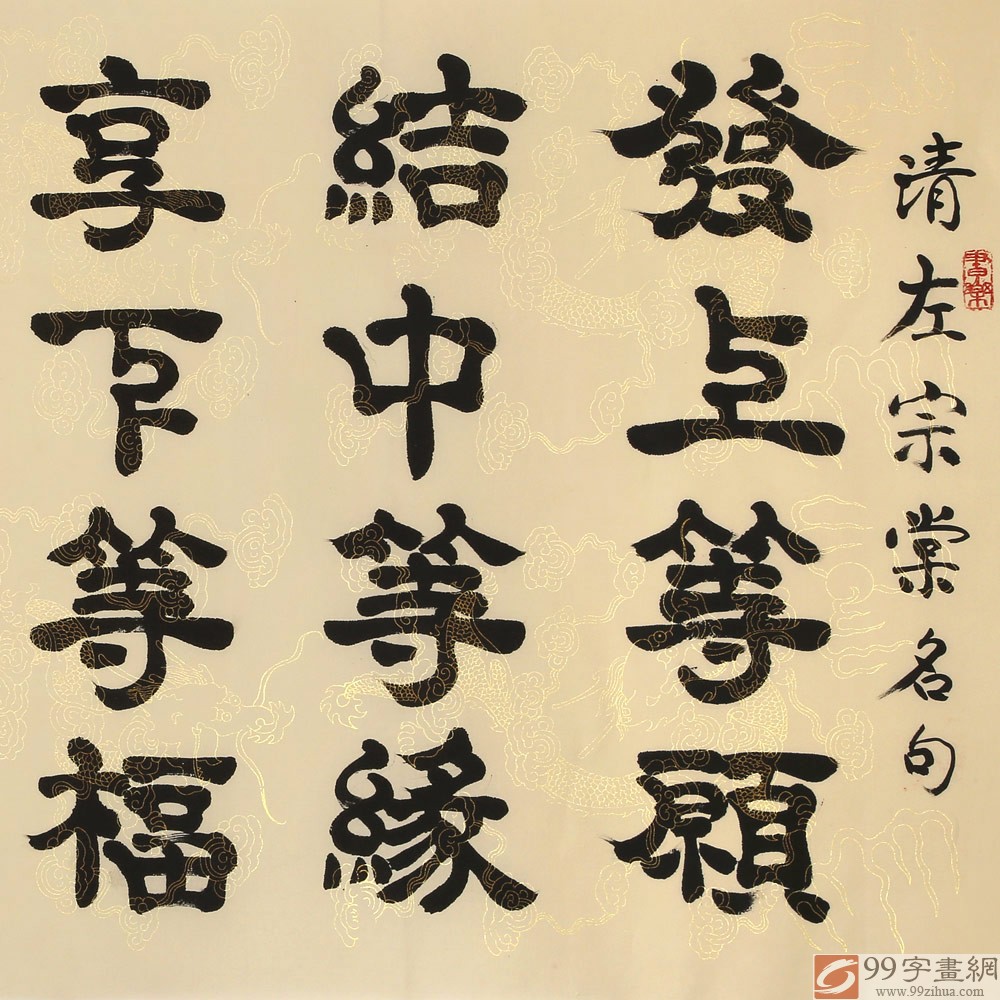 清左宗棠名句
發上等願
結中等緣
享下等福
99字畫網
www.99zihua.com